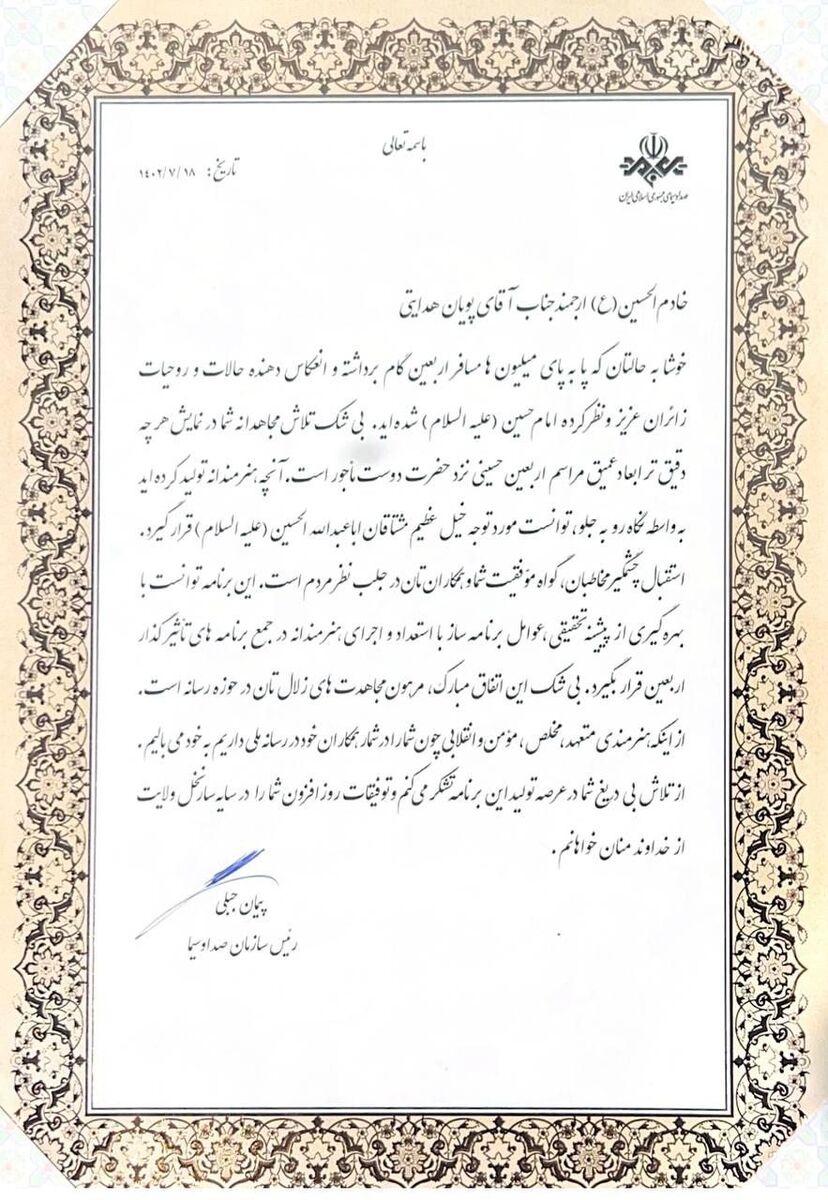 باسمه تعالی
صدا و سیمای جمهوری اسلامی ایران
تاریخ: ۱۴۰۲/۷/۱۸
خادم الحسین (ع) ارجمند جناب آقای پویان هدایتی
خوشا به حالتان که پا به پای میلیون ها مسافر اربعین گام برداشته و انعکاس دهنده حالات و روحیات
زائران عزیز و نظر کرده امام حسین (علیه السلام) شده اید. بی شک تلاش مجاهدانه شما در نمایش هر چه
دقیق تر ابعاد عمیق مراسم اربعین حسینی نزد حضرت دوست مأجور است. آنچه هنرمندانه تولید کرده اید
به واسطه نگاه رو به جلو، توانست مورد توجه خیل عظیم مشتاقان اباعبدالله الحسین (علیه السلام) قرار گیرد.
استقبال چشمگیر مخاطبان، گواه مؤفقیت شما و همکاران تان در جلب نظر مردم است. این برنامه توانست با
بهره گیری از پیشینه تحقیقی، عوامل برنامه ساز با استعداد و اجرای هنرمندانه در جمع برنامه های تأثیرگذار
اربعین قرار بگیرد. بی شک این اتفاق مبارک، مرهون مجاهدت های زلال تان در حوزه رسانه است.
از اینکه هنرمندی متعهد، مخلص، مؤمن و انقلابی چون شما را در شمار همکاران خود در رسانه ملی داریم به خود می بالیم.
از تلاش بی دریغ شما در عرصه تولید این برنامه تشکر می کنم و توفیقات روز افزون شما را در سایه سار نخل ولایت
از خداوند منان خواهانم.
پیمان جبلی
رئیس سازمان صدا و سیما